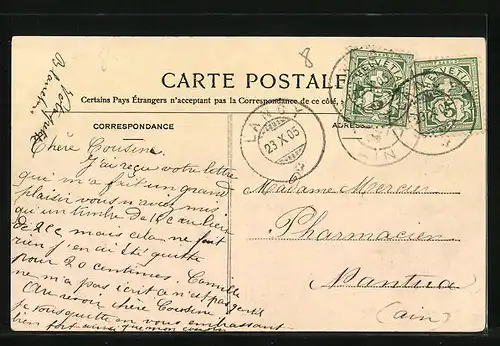 8
CARTE POSTALE
Certains Pays Étrangers n'acceptant pas la Correspondance de ce côté, s
CORRESPONDANCE
ADRES
HELVETIA
5
HELVETIA
5
LANCY
23 X 05
Chère Cousine
J'ai reçu votre lettre
qui m'a fait un grand
plaisir vous m'avez mis
qu'un timbre de 10 c au lieu
de 20 c mais cela ne fait
rien j'en ai été quitte
pour 20 centimes. Camille
ne m'a pas écrit
Au revoir chère Cousine
je vous quitte en vous embrassant
bien fort ainsi que mon cousin
Madame Mercier
Pharmacien
Nantua
(Ain)